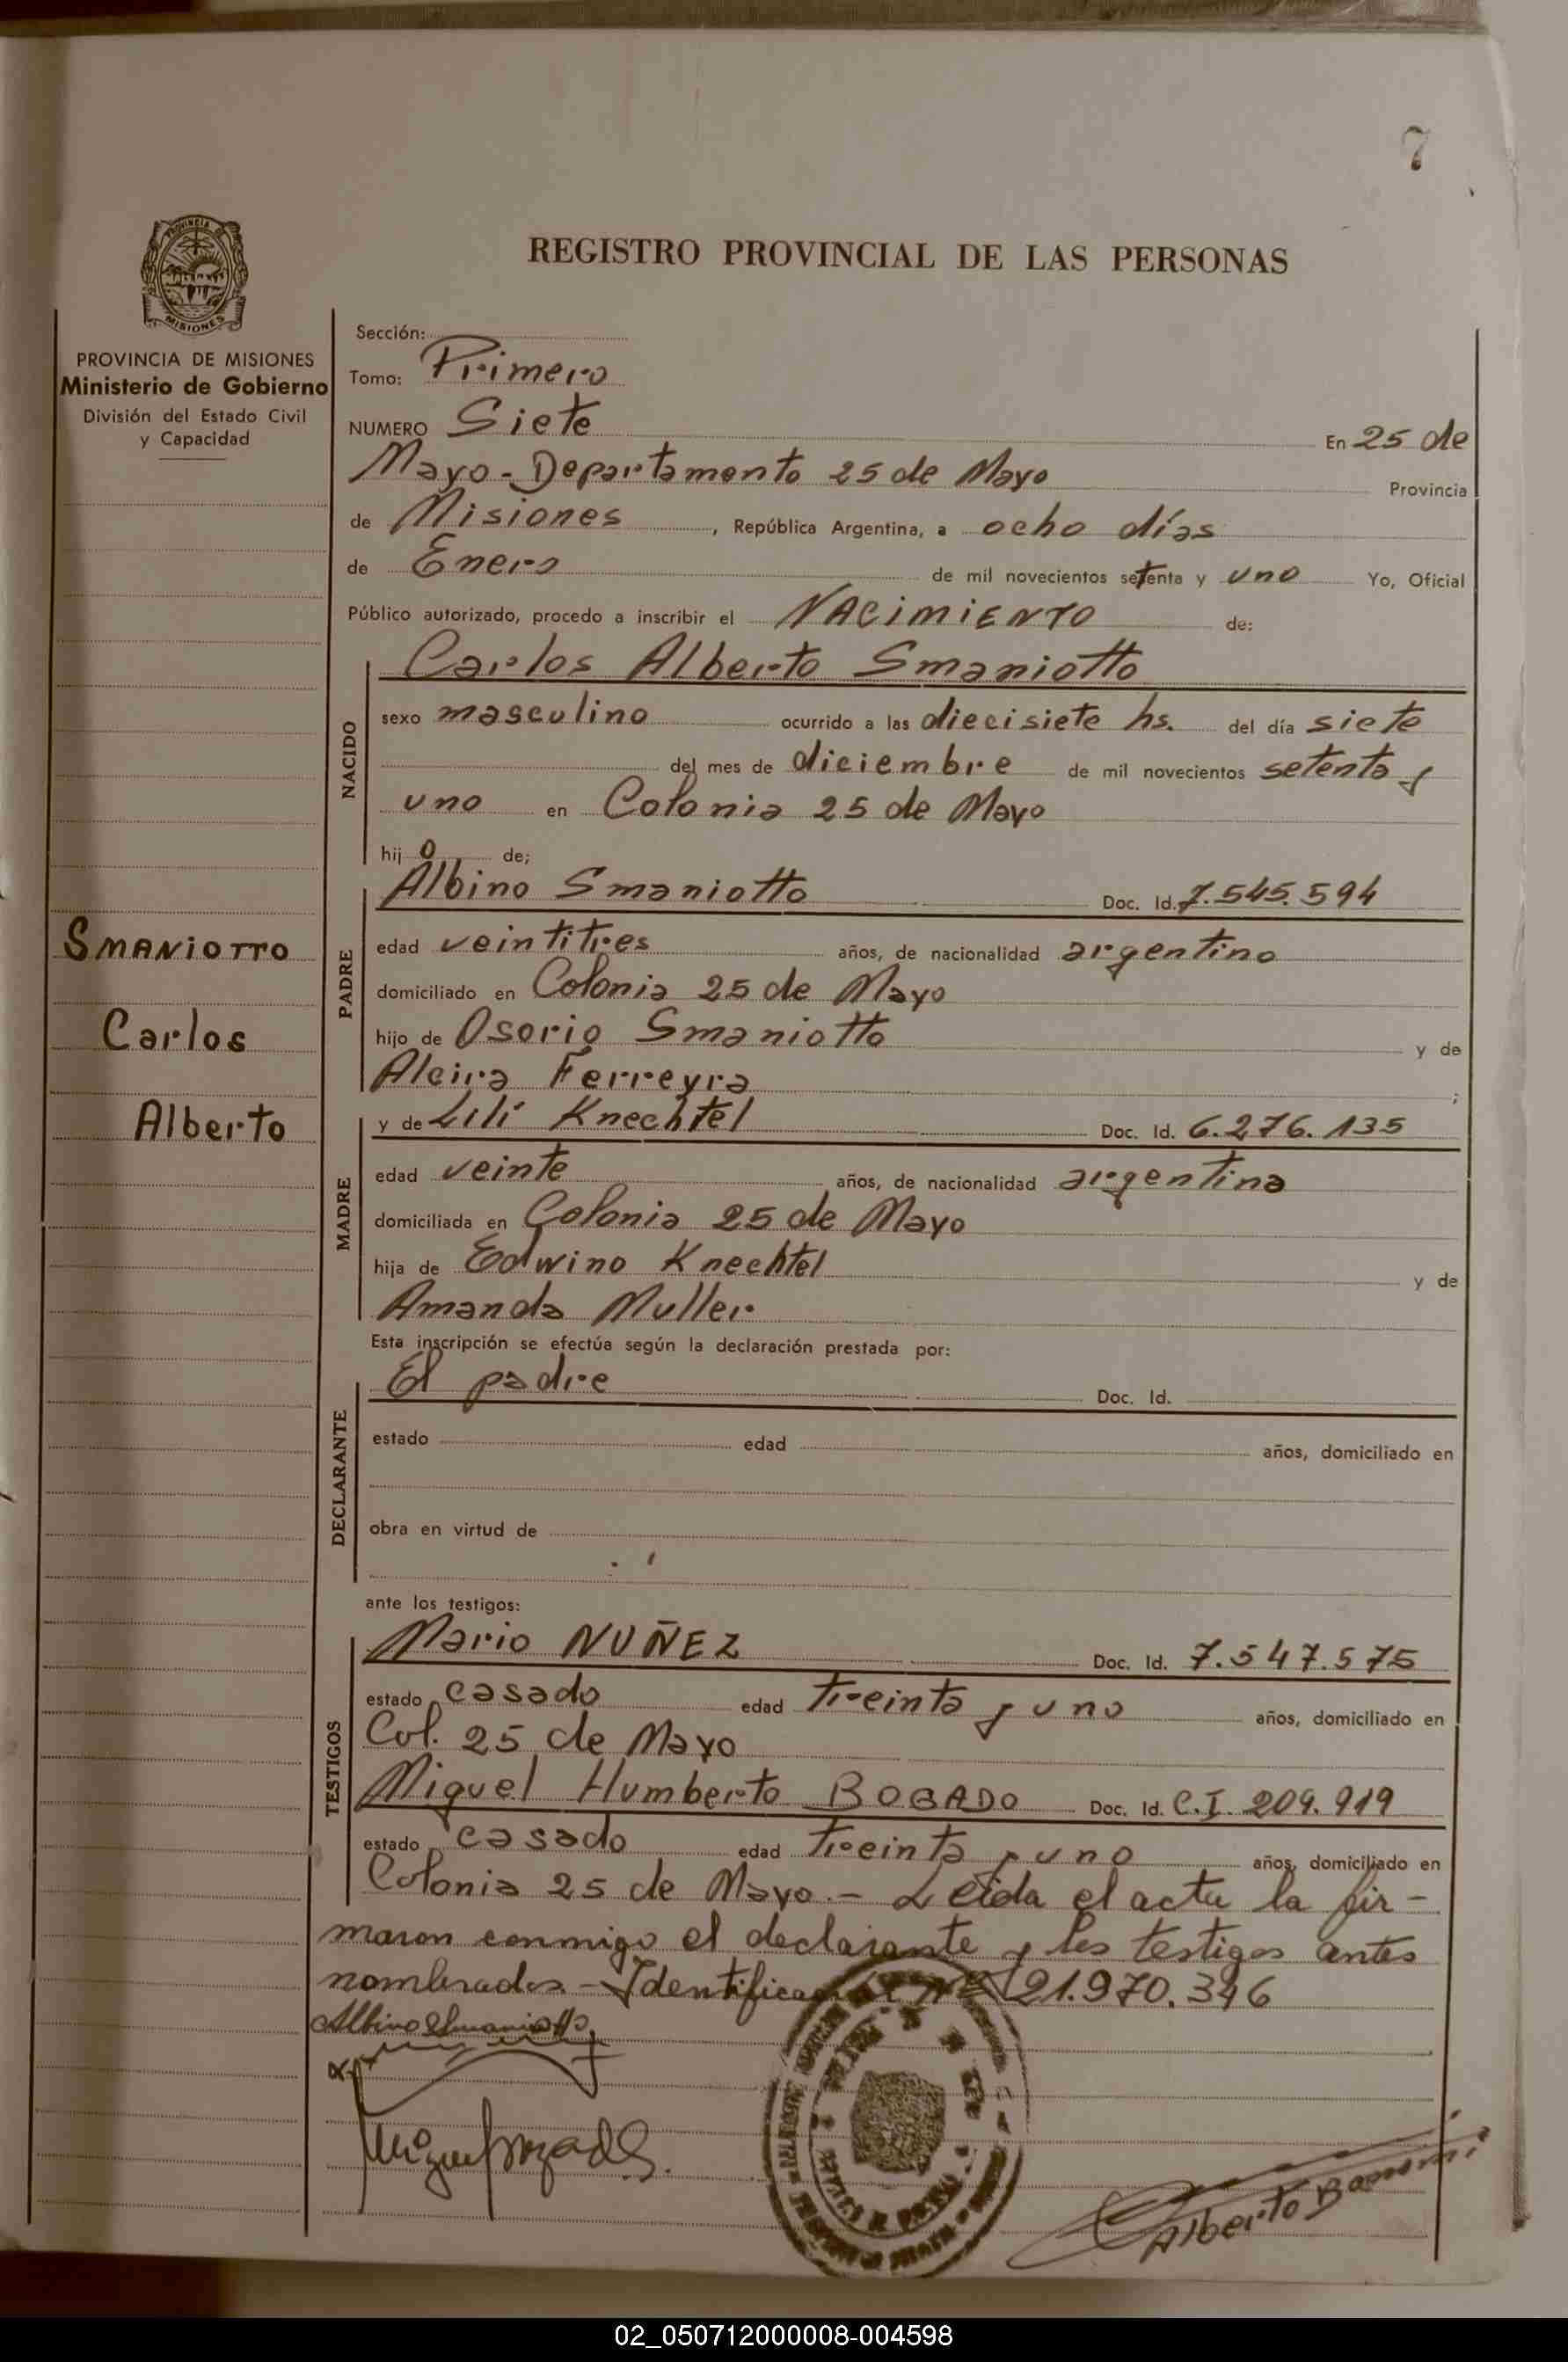 7
REGISTRO PROVINCIAL DE LAS PERSONAS
PROVINCIA DE MISIONES
Ministerio de Gobierno
División del Estado Civil
y Capacidad
Sección:
Tomo: Primero
NUMERO Siete En 25 de
Mayo - Departamento 25 de Mayo Provincia
de Misiones, República Argentina, a ocho días
de Enero de mil novecientos setenta y uno Yo, Oficial
Público autorizado, procedo a inscribir el NACIMIENTO de:
Carlos Alberto Smaniotto
NACIDO
sexo masculino ocurrido a las diecisiete hs. del día siete
del mes de diciembre de mil novecientos setenta y
uno en Colonia 25 de Mayo
hij o de;
PADRE
Albino Smaniotto Doc. Id. 7.545.594
edad veintitres años, de nacionalidad argentino
domiciliado en Colonia 25 de Mayo
hijo de Osorio Smaniotto y de
Alcira Ferreyra ;
SMANIOTTO
Carlos
Alberto
MADRE
y de Lilí Knechtel Doc. Id. 6.276.135
edad veinte años, de nacionalidad argentina
domiciliada en Colonia 25 de Mayo
hija de Edwino Knechtel y de
Amanda Muller
Esta inscripción se efectúa según la declaración prestada por:
DECLARANTE
El padre Doc. Id.
estado edad años, domiciliado en
obra en virtud de
ante los testigos:
TESTIGOS
Mario NUÑEZ Doc. Id. 7.547.575
estado casado edad treinta y uno años, domiciliado en
Col. 25 de Mayo
Miguel Humberto BOGADO Doc. Id. C.I. 209.919
estado casado edad treinta y uno años, domiciliado en
Colonia 25 de Mayo. - Leída el acta la fir-
maron conmigo el declarante y los testigos antes
nombrados. - Identificación Nº 21.970.346
Albino Smaniotto
Alberto
02_050712000008-004598